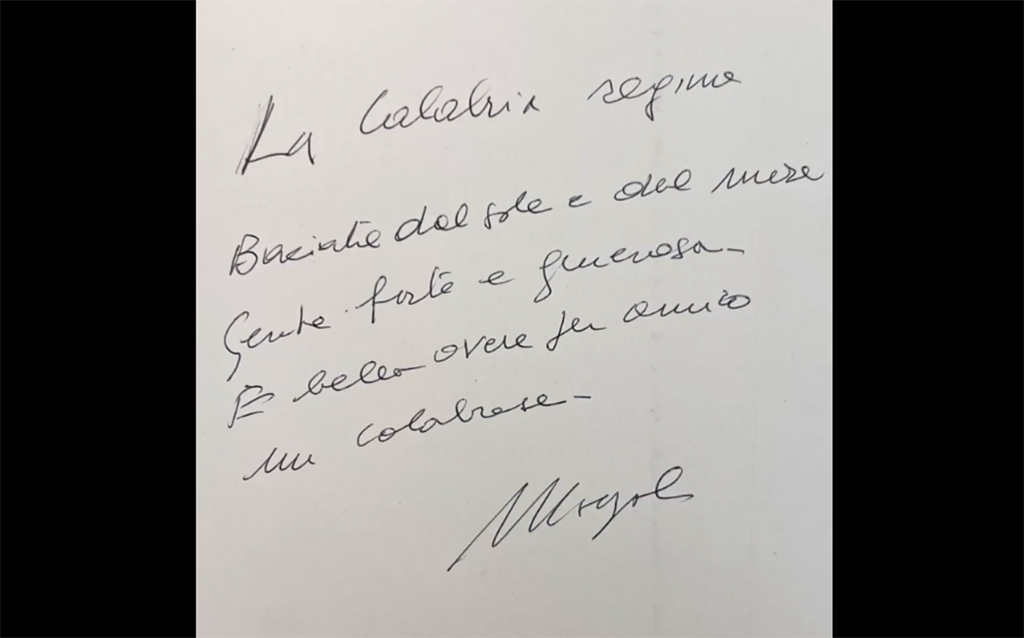 La Calabria regina
Baciata dal sole e dal mare
Gente forte e generosa -
È bello avere per amico
un calabrese -
Mogol